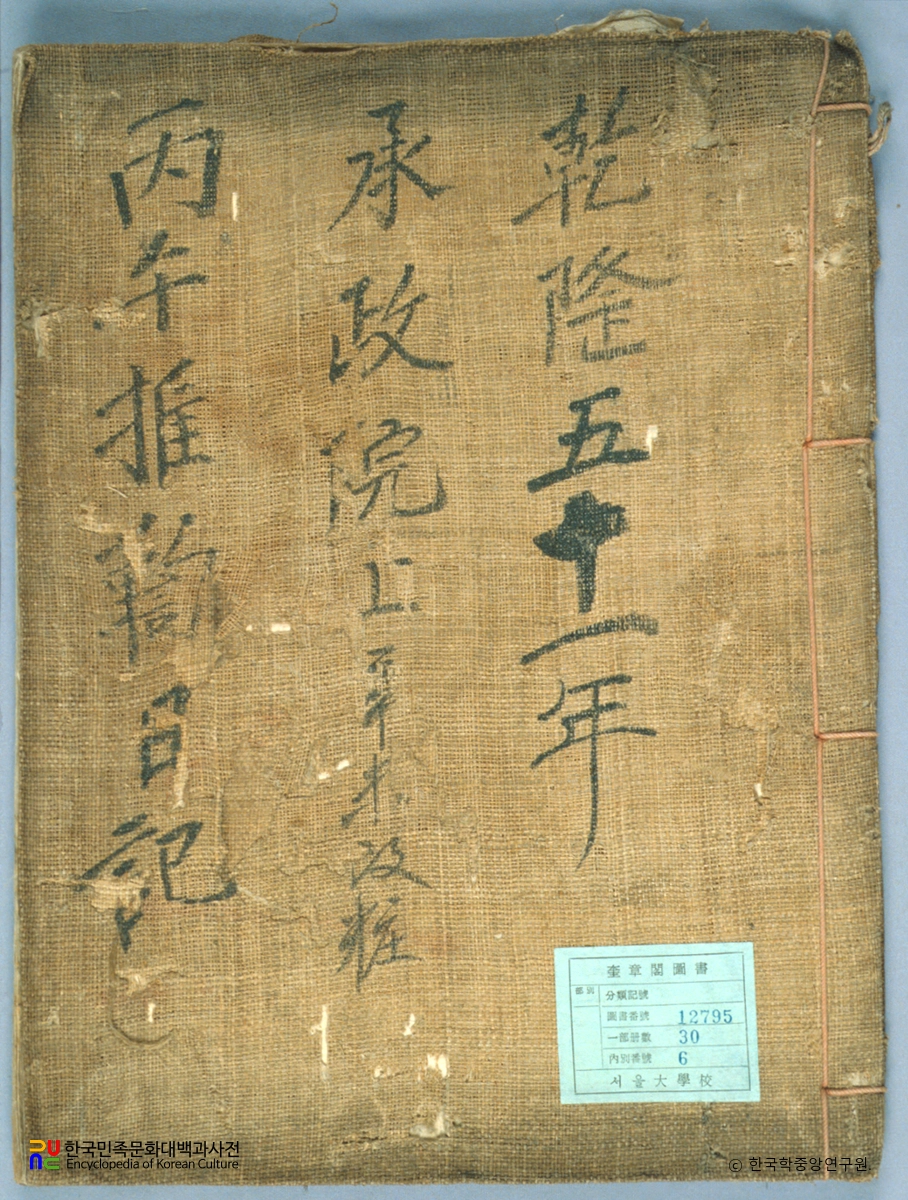 乾隆五十一年
承政院上辛未改粧
丙午推鞫日記
奎章閣圖書
部別
分類記號
圖書番號 12795
一部册數 30
内別番號 6
서울大學校
한국민족문화대백과사전
Encyclopedia of Korean Culture
ⓒ 한국학중앙연구원